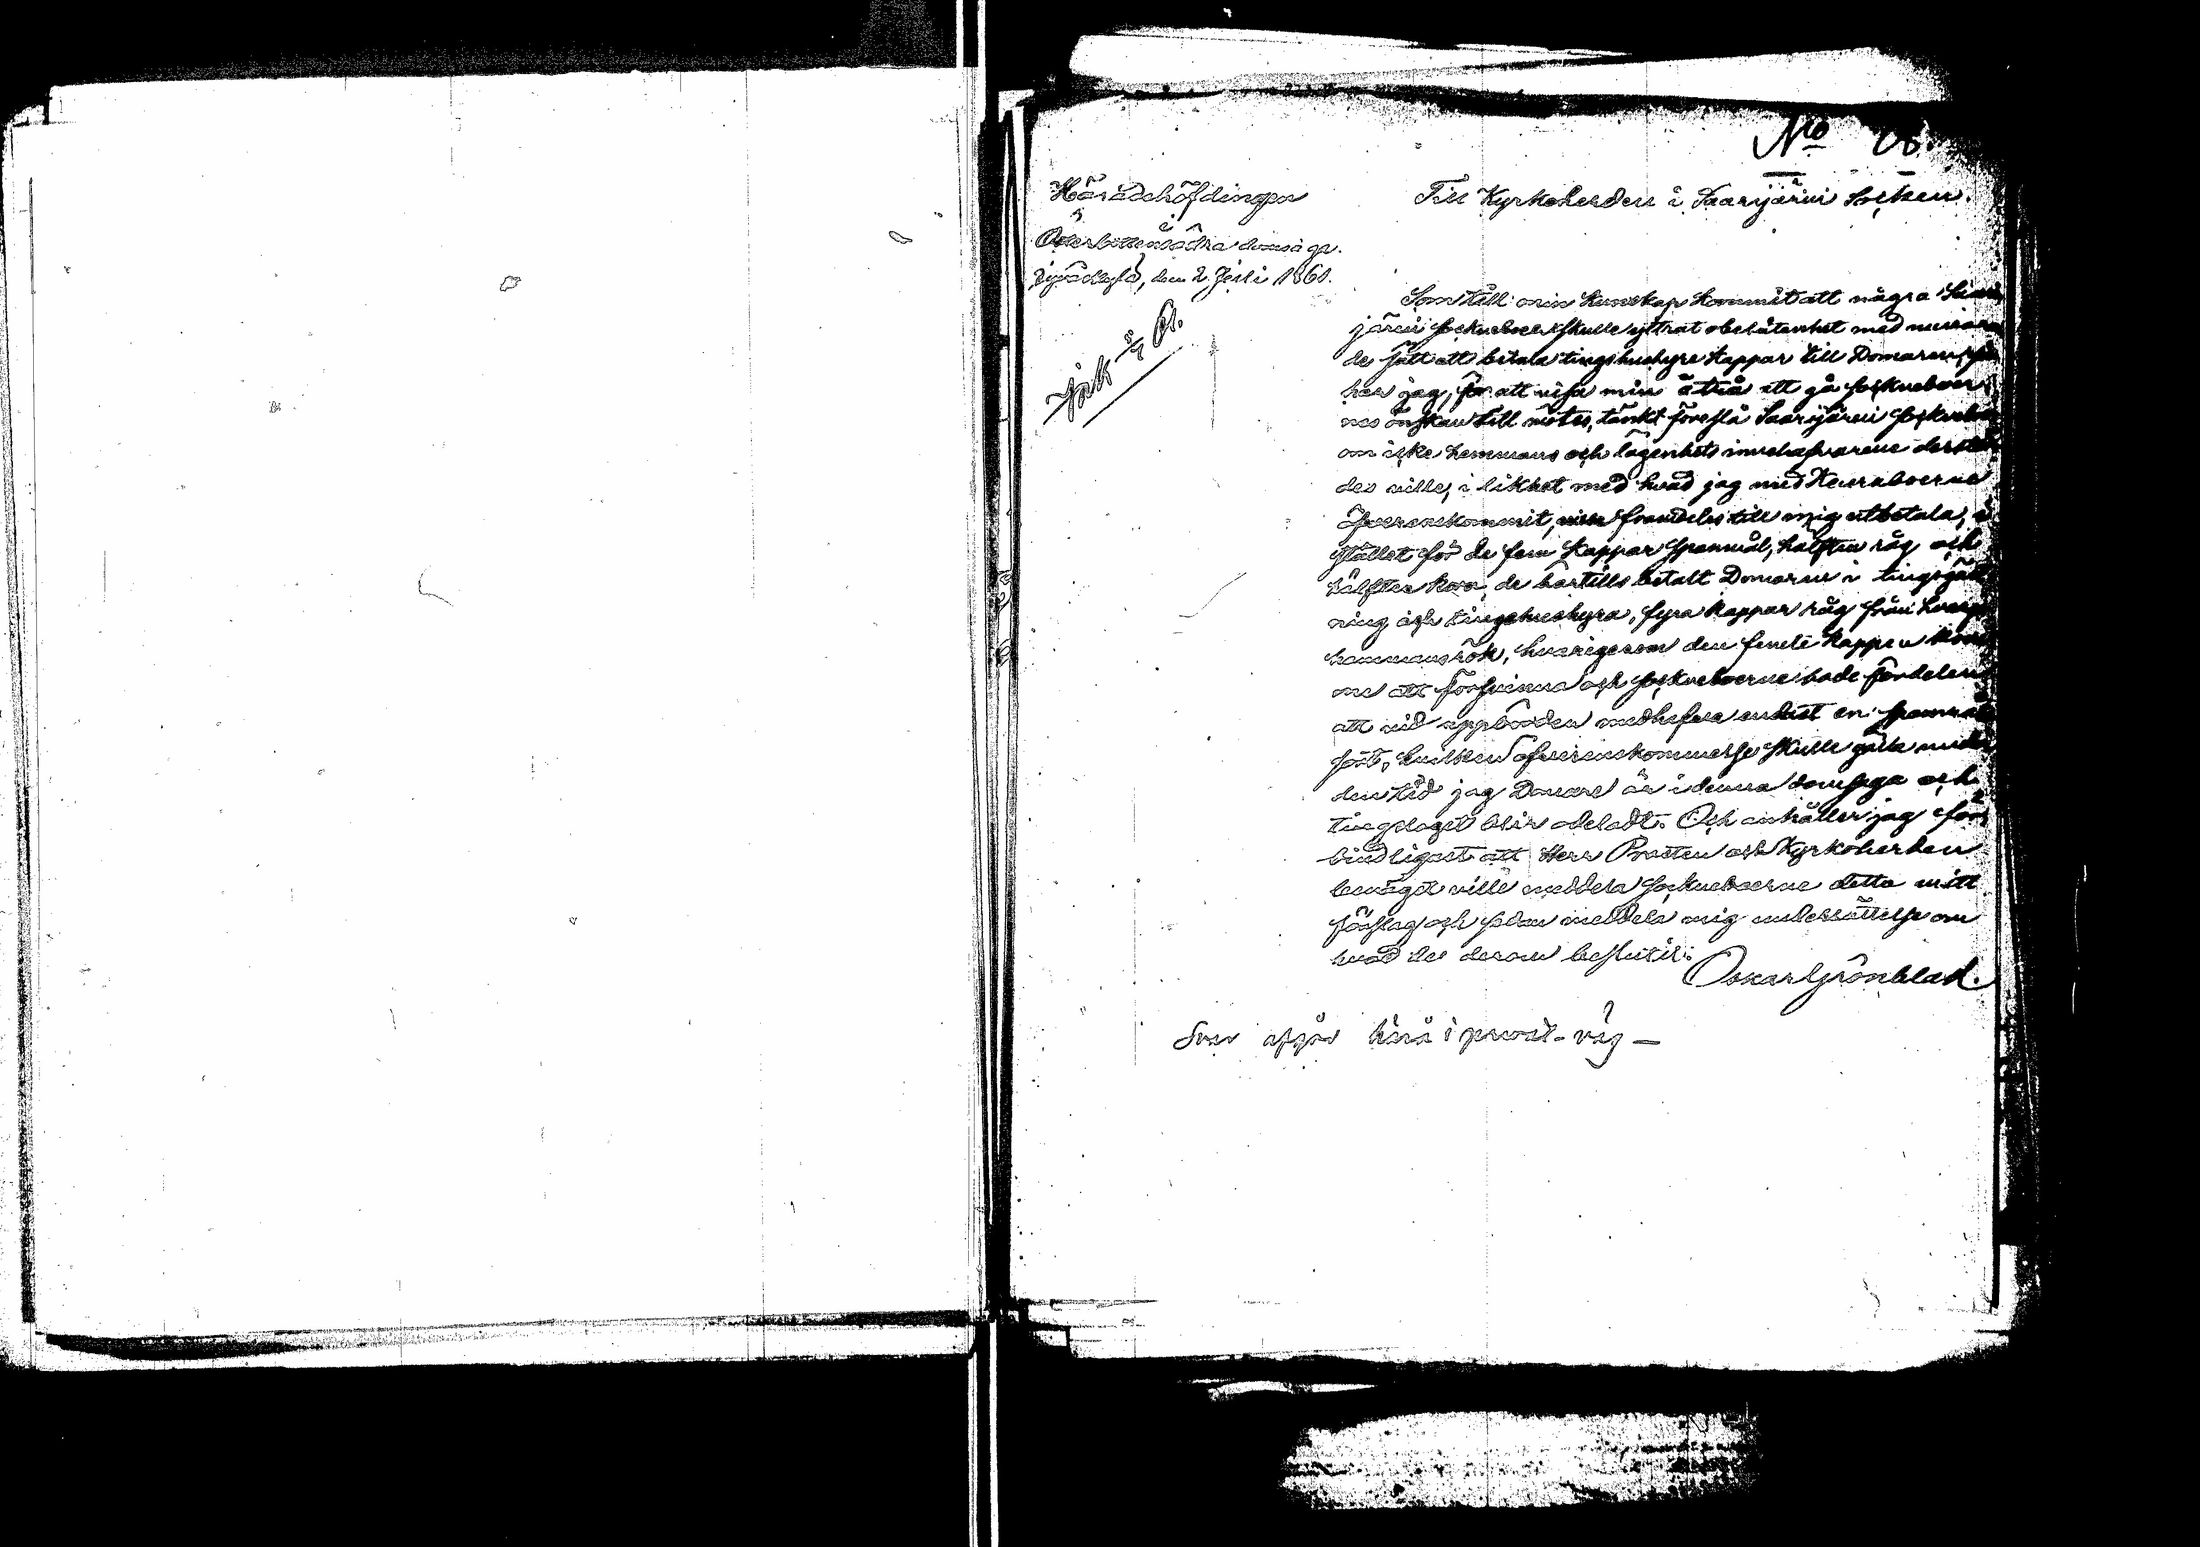 No
Häradshöfdingen
i
Österbottens södra domsaga.
Jyväskylä, den 2 Juli 1860.
Till Kyrkoherden i Saarijärvi Socken.
Som till min kunskap kommit att några Saari
järvi sockneboer skulle yttrat obelåtenhet med nuvaran
de sätt att betala tingshushyre kappar till Domaren, så
har jag, för att visa min åtrå att gå sockneboer
nes önskan till mötes, tänkt föreslå Saarijärvi sockneboer
om icke hemmans och lägenhets innehafvarene derstä
des ville, i likhet med hvad jag med Keuruboerne
öfverenskommit, framdeles till mig utbetala, i
stället för de fem kappar spannmål, hälften råg och
hälften korn, de härtills betalt Domaren i tingsgäst
ning och tingshushyra, fyra kappar råg från hvarje
hemmansrök, hvarigenom den femte kappen kom
me att försvinna och sockneboerne hade fördelen
att vid uppbörden medhafva endast en spannmåls
sort, hvilken öfverenskommelse skulle gälla under
den tid jag Domare är i denna domsaga och
tingslaget blir odeladt. Och anhåller jag för
bindligast att Herr Prosten och Kyrkoherden
benäget ville meddela sockneboerne detta mitt
förslag och sedan meddela mig underrättelse om
hvad de derom beslutit.
Oskar Grönblad.
Svar afgår härå i privat-väg —